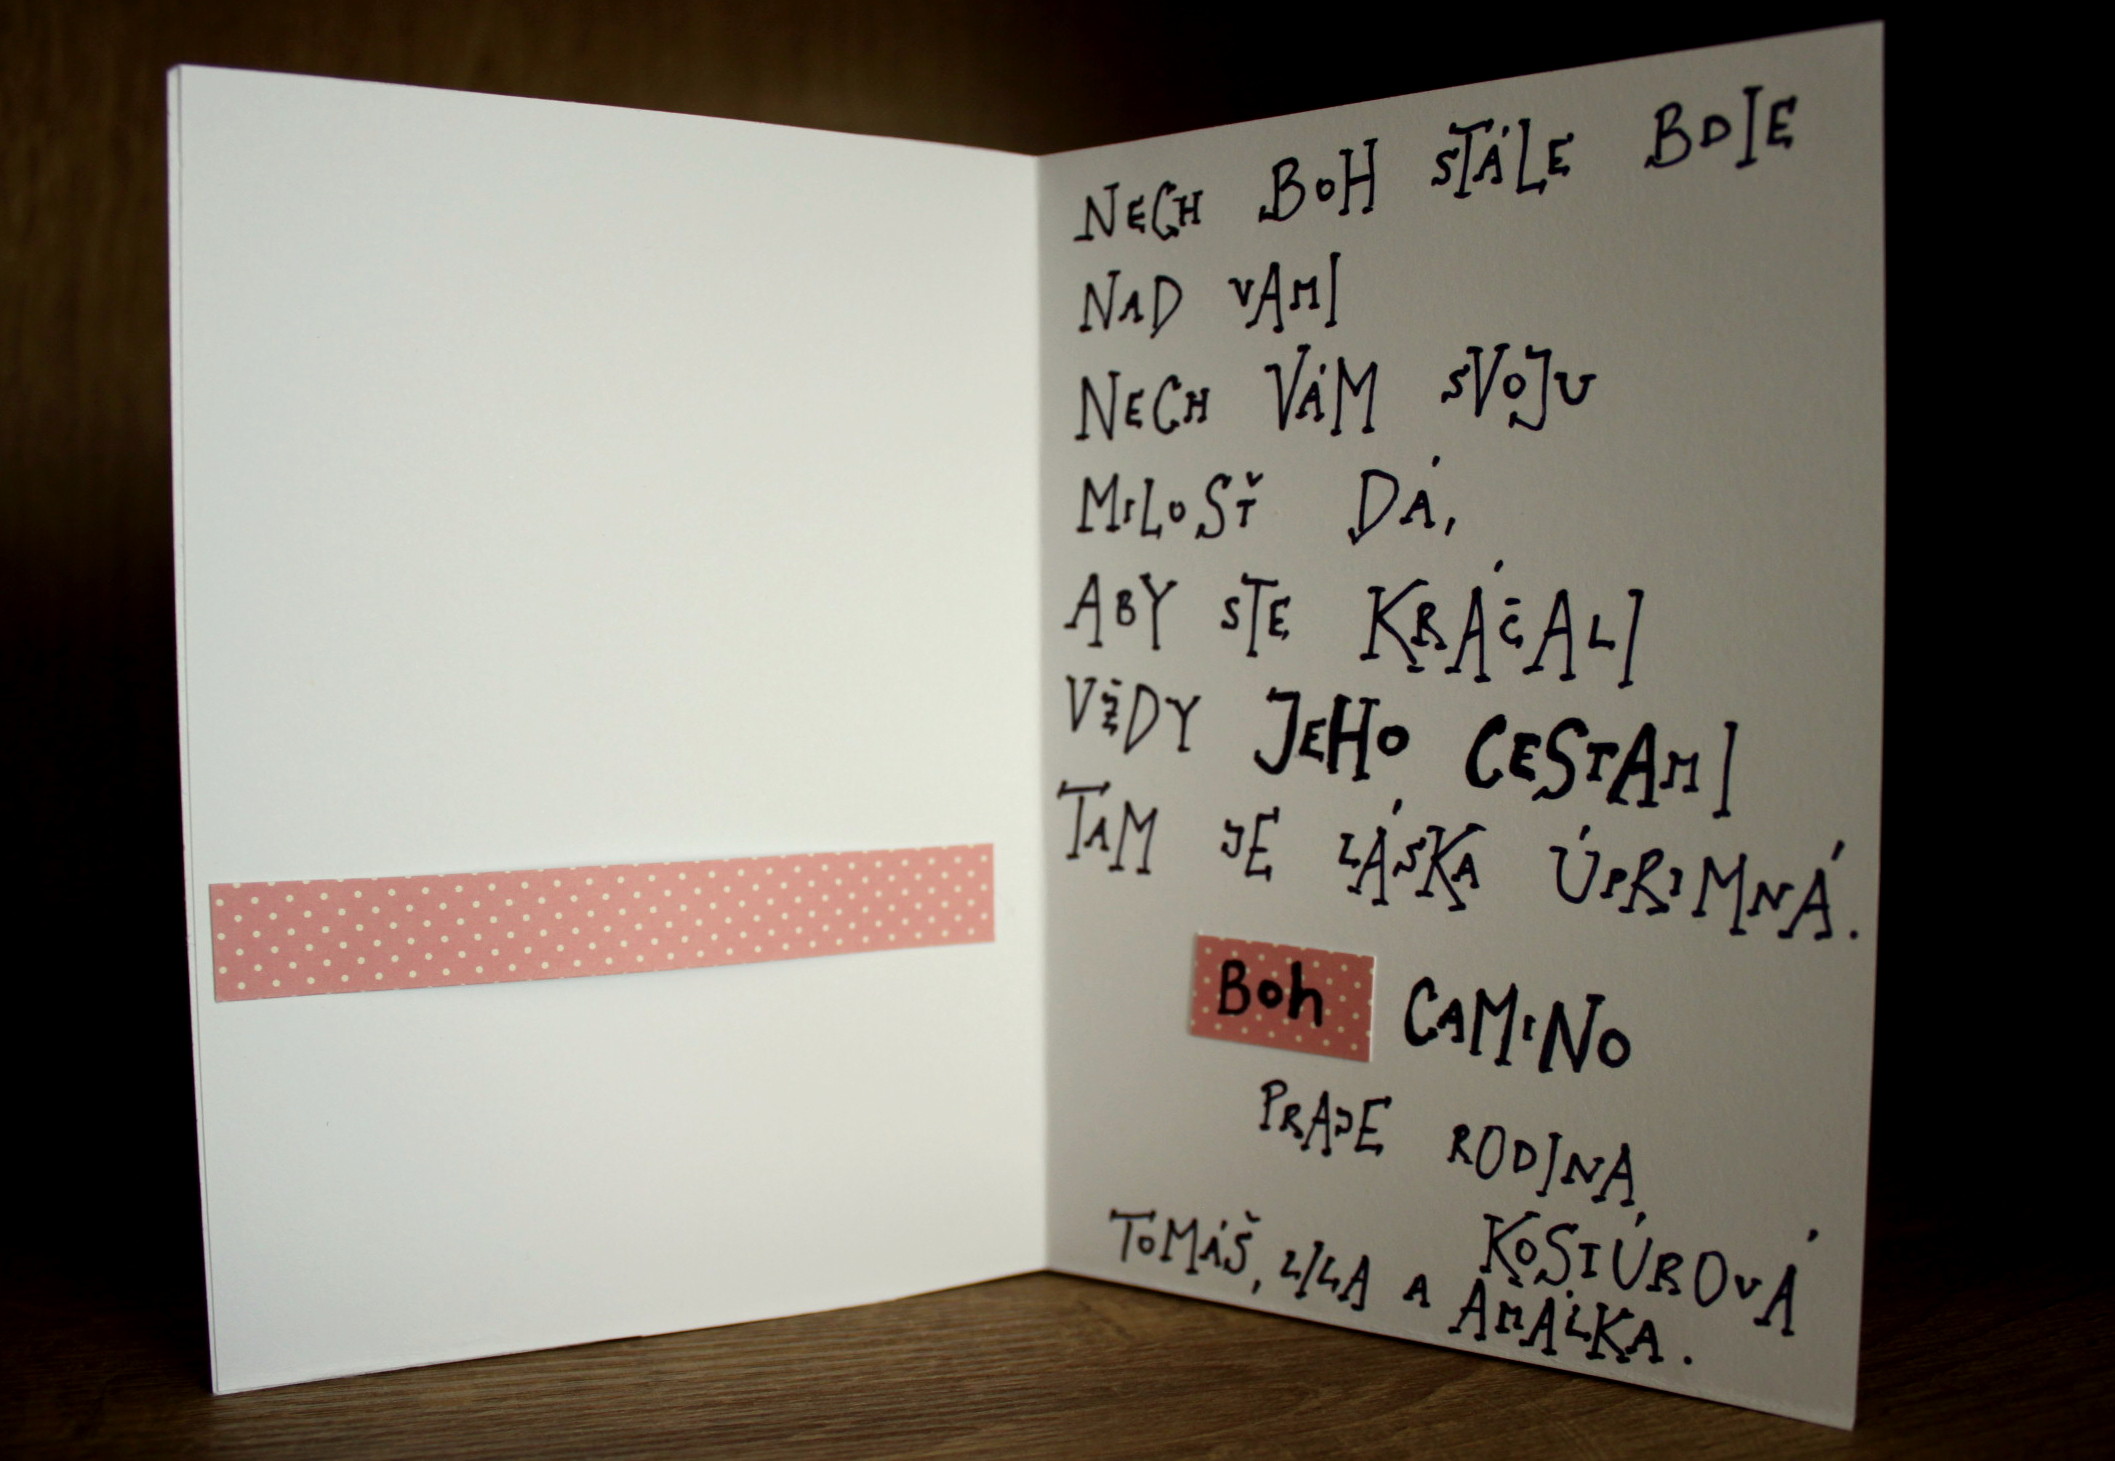 NECH BOH STÁLE BDIE
NAD VAMI
NECH VÁM SVOJU
MILOSŤ DÁ,
ABY STE KRÁČALI
VŽDY JEHO CESTAMI
TAM JE LÁSKA ÚPRIMNÁ.
Boh CAMINO
PRAJE RODINA
KOSTÚROVÁ
TOMÁŠ, LILA A AMÁLKA.